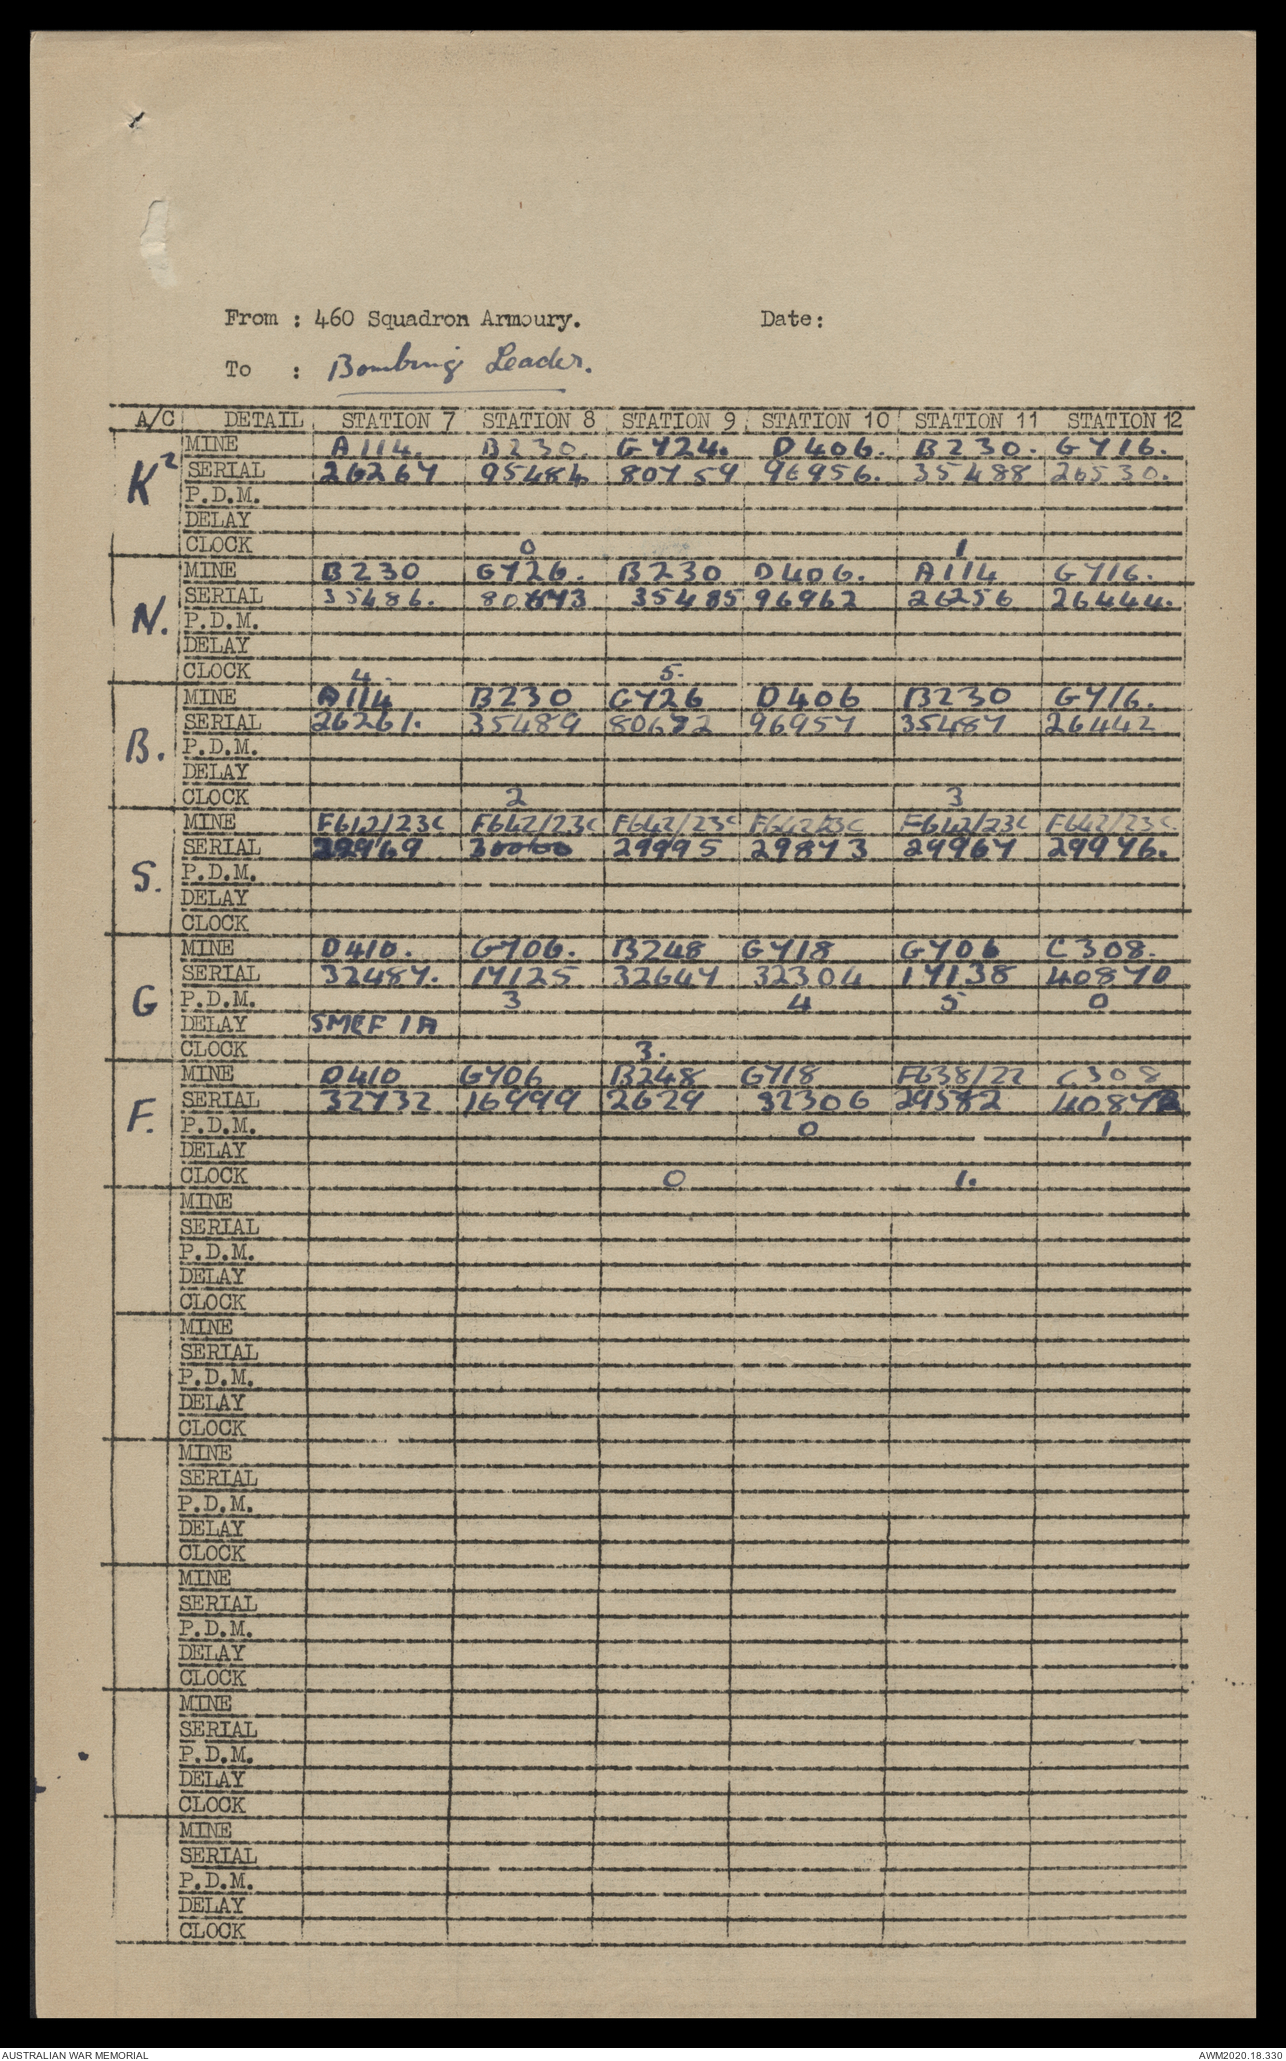 From : 460 Squadron Armoury. Date:
To : Bombing Leader.
A/C DETAIL STATION 7 STATION 8 STATION 9 STATION 10 STATION 11 STATION 12
K² MINE A114. B230. G724. D406. B230. G716.
SERIAL 26267 95484 80759 96956. 35488 26530.
P.D.M.
DELAY
CLOCK 0 1
N. MINE B230 G726. B230 D406. A114 G716.
SERIAL 35486. 35485 96962 26256 26444.
P.D.M.
DELAY
CLOCK 4. 5.
B. MINE A114 B230 G726 D406 B230 G716.
SERIAL 26261. 35489 80672 96957 35487 26442
P.D.M.
DELAY
CLOCK 2 3
S. MINE F612/23C F642/23C F642/23C F642/23C F612/23C F642/23C
SERIAL 29969 30000 29995 29873 29967 29976.
P.D.M.
DELAY
CLOCK
G MINE D410. G706. B248 G718 G706 C308.
SERIAL 32487. 17125 32647 32304 17138 40870
P.D.M. 3 4 5 0
DELAY SMCF 1A
CLOCK 3.
F. MINE D410 G706 B248 G718 F638/22 C308
SERIAL 32732 16999 2629 32306 29582
P.D.M. 0 1
DELAY
CLOCK 0 1.
MINE
SERIAL
P.D.M.
DELAY
CLOCK
MINE
SERIAL
P.D.M.
DELAY
CLOCK
MINE
SERIAL
P.D.M.
DELAY
CLOCK
MINE
SERIAL
P.D.M.
DELAY
CLOCK
MINE
SERIAL
P.D.M.
DELAY
CLOCK
MINE
SERIAL
P.D.M.
DELAY
CLOCK
AUSTRALIAN WAR MEMORIAL AWM2020.18.330